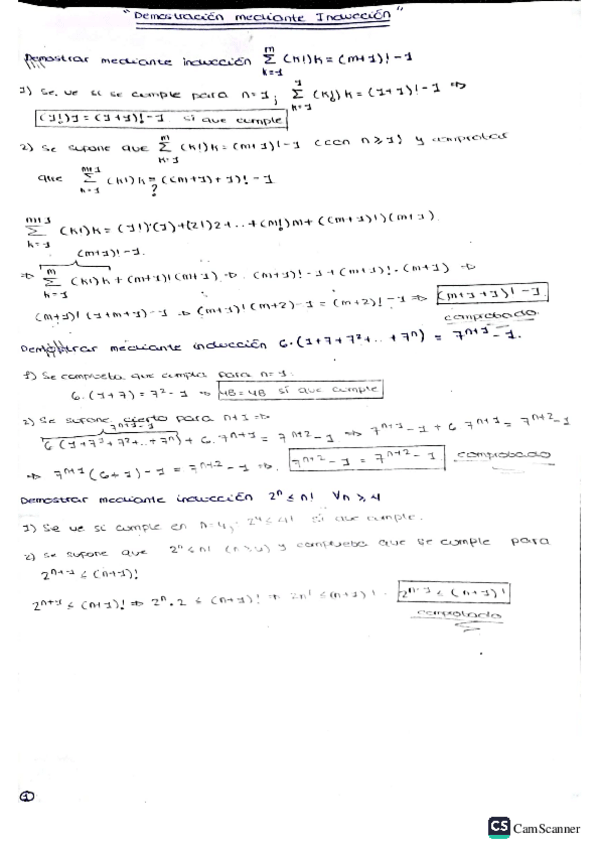 "Demostración mediante Inducción"
Demostrar mediante inducción Σ_{k=1}^{m} (k!)k = (m+1)! - 1
1) Se ve si se cumple para n=1; Σ_{k=1}^{1} (k!)k = (1+1)! - 1 ⇒
(1!)1 = (1+1)! - 1 sí que cumple
2) Se supone que Σ_{k=1}^{m} (k!)k = (m+1)! - 1 (con n ≥ 1) y comprobar
que Σ_{k=1}^{m+1} (k!)k = ((m+1)+1)! - 1
?
Σ_{k=1}^{m+1} (k!)k = (1!)(1) + (2!)2 + .. + (m!)m + ((m+1)!)(m+1)
(m+1)! - 1.
⇒ Σ_{k=1}^{m} (k!)k + (m+1)!(m+1) ⇒ (m+1)! - 1 + (m+1)! · (m+1) ⇒
(m+1)! (1+m+1) - 1 ⇒ (m+1)! (m+2) - 1 = (m+2)! - 1 ⇒ (m+1+1)! - 1
comprobado.
Demostrar mediante inducción 6·(1+7+7²+..+7ⁿ) = 7ⁿ⁺¹ - 1.
1) Se comprueba que cumpla para n=1.
6·(1+7) = 7² - 1 ⇒ 48 = 48 sí que cumple
2) Se supone cierto para n+1 ⇒
7ⁿ⁺¹ - 1
6(1+7¹+7²+..+7ⁿ) + 6·7ⁿ⁺¹ = 7ⁿ⁺² - 1 ⇒ 7ⁿ⁺¹ - 1 + 6 7ⁿ⁺¹ = 7ⁿ⁺² - 1
⇒ 7ⁿ⁺¹ (6+1) - 1 = 7ⁿ⁺² - 1 ⇒ 7ⁿ⁺² - 1 = 7ⁿ⁺² - 1 comprobado
Demostrar mediante inducción 2ⁿ ≤ n! ∀n ≥ 4
1) Se ve si cumple en n=4; 2⁴ ≤ 4! sí que cumple.
2) Se supone que 2ⁿ ≤ n! (n ≥ 4) y comprueba que se cumple para
2ⁿ⁺¹ ≤ (n+1)!
2ⁿ⁺¹ ≤ (n+1)! ⇒ 2ⁿ · 2 ≤ (n+1)! ⇒ 2n! ≤ (n+1)! · 2ⁿ⁺¹ ≤ (n+1)!
comprobado
1
CS CamScanner